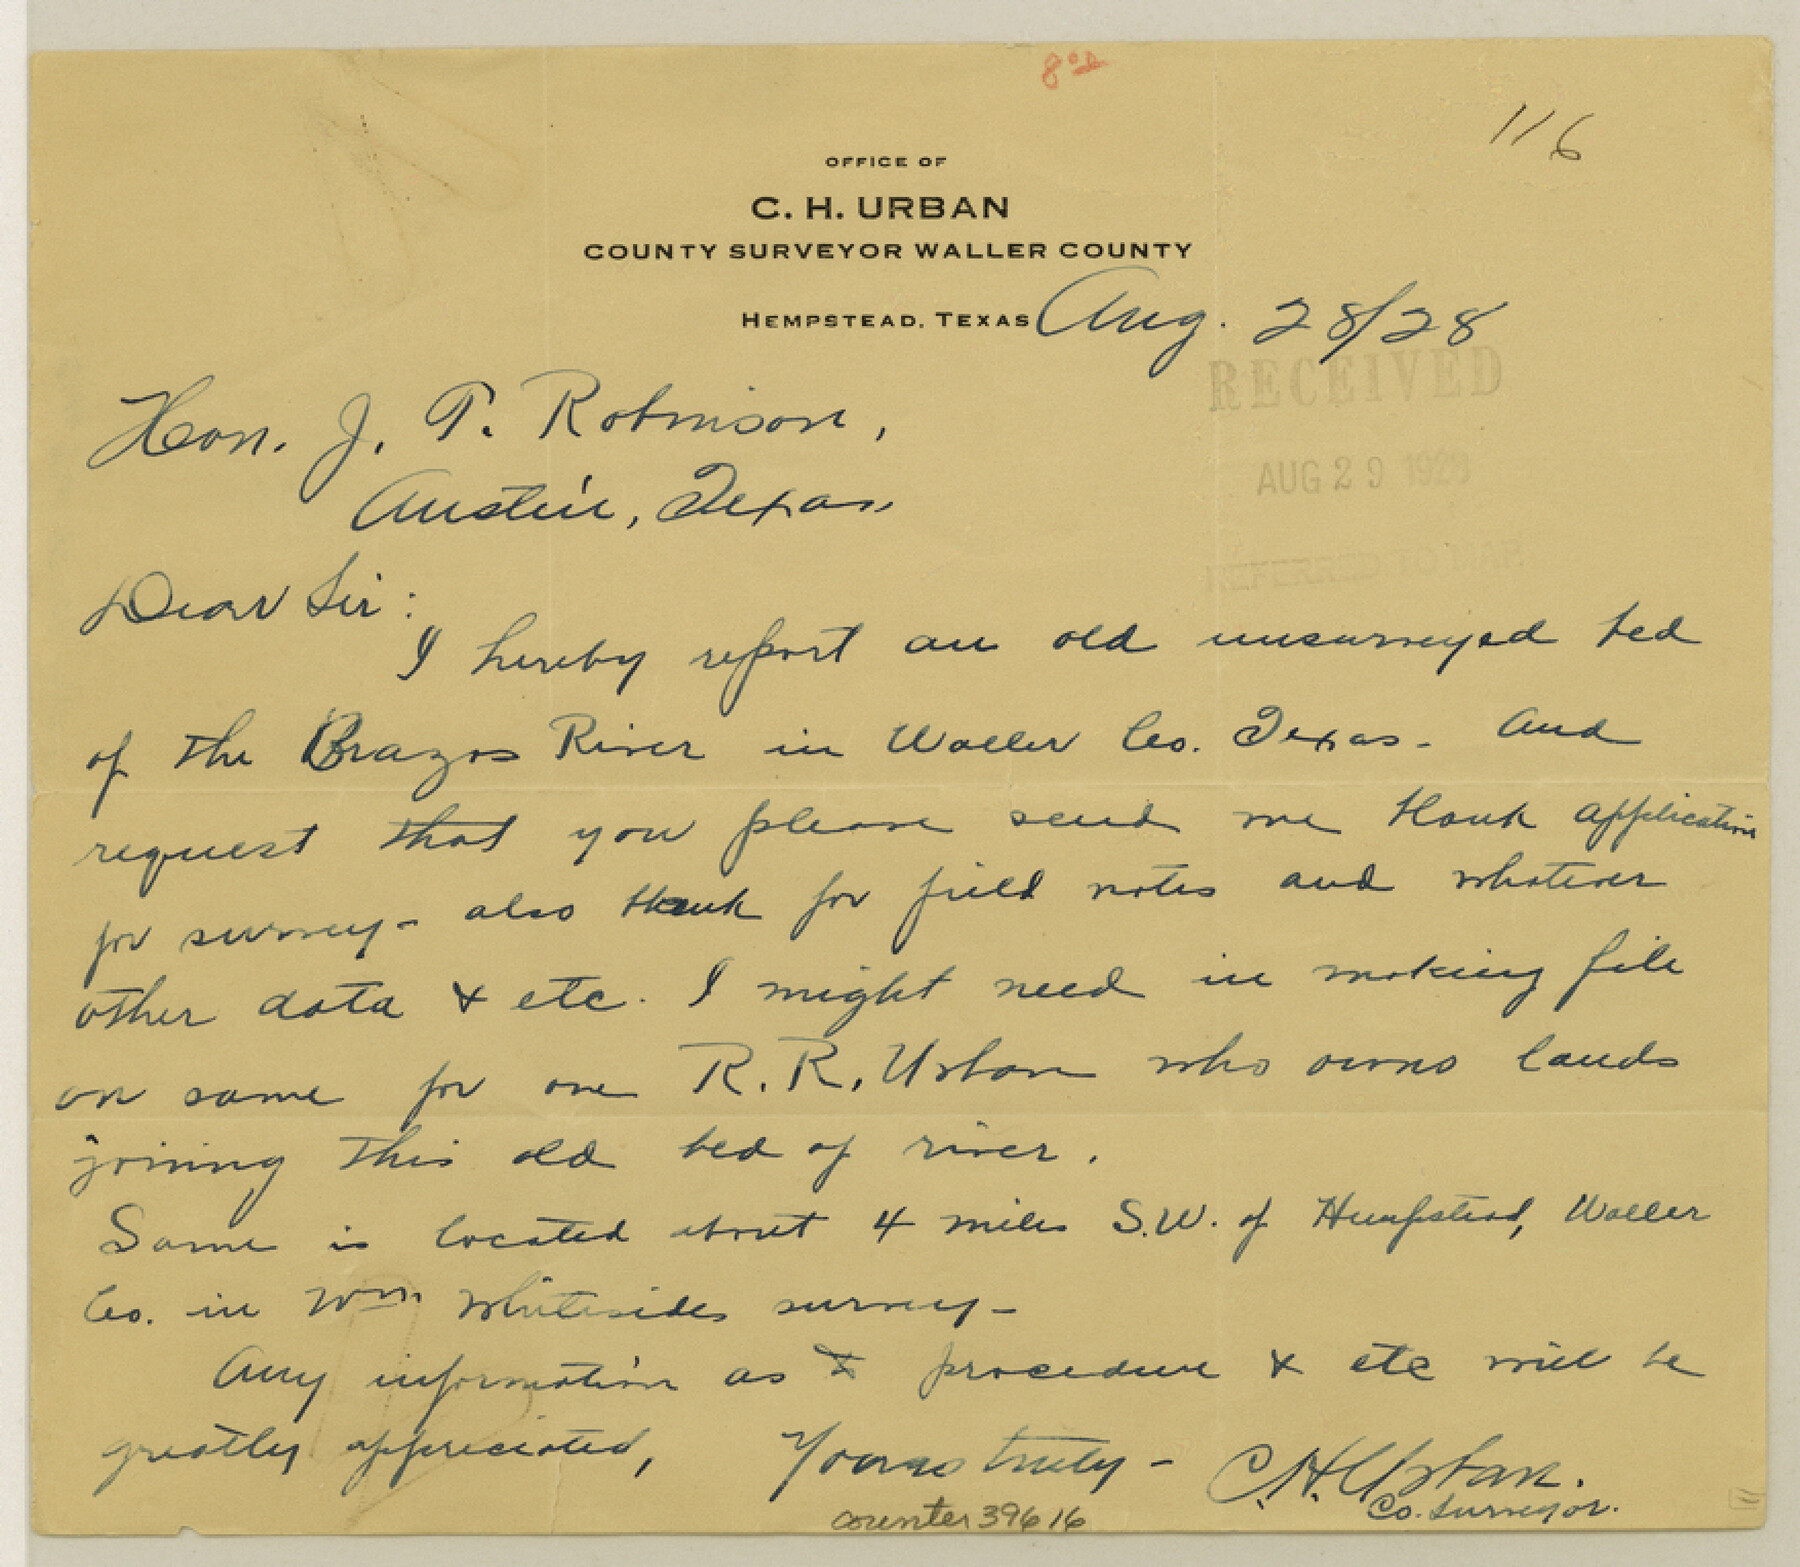 8 00
116
OFFICE OF
C. H. URBAN
COUNTY SURVEYOR WALLER COUNTY
HEMPSTEAD, TEXAS Aug. 28/28
RECEIVED
AUG 29 1928
REFERRED TO MAP
Hon. J. T. Robinson,
Austin, Texas
Dear Sir:
I hereby report an old unsurveyed bed
of the Brazos River in Waller Co. Texas. And
request that you please send me blank application
for survey - also blank for field notes and whatever
other data & etc. I might need in making file
on same for one R. R. Urban who owns lands
joining this old bed of river.
Same is located about 4 miles S.W. of Hempstead, Waller
Co. in Wm. Whitesides survey -
Any information as to procedure & etc will be
greatly appreciated, Yours truly - C. H. Urban.
Co. Surveyor.
counter 39616